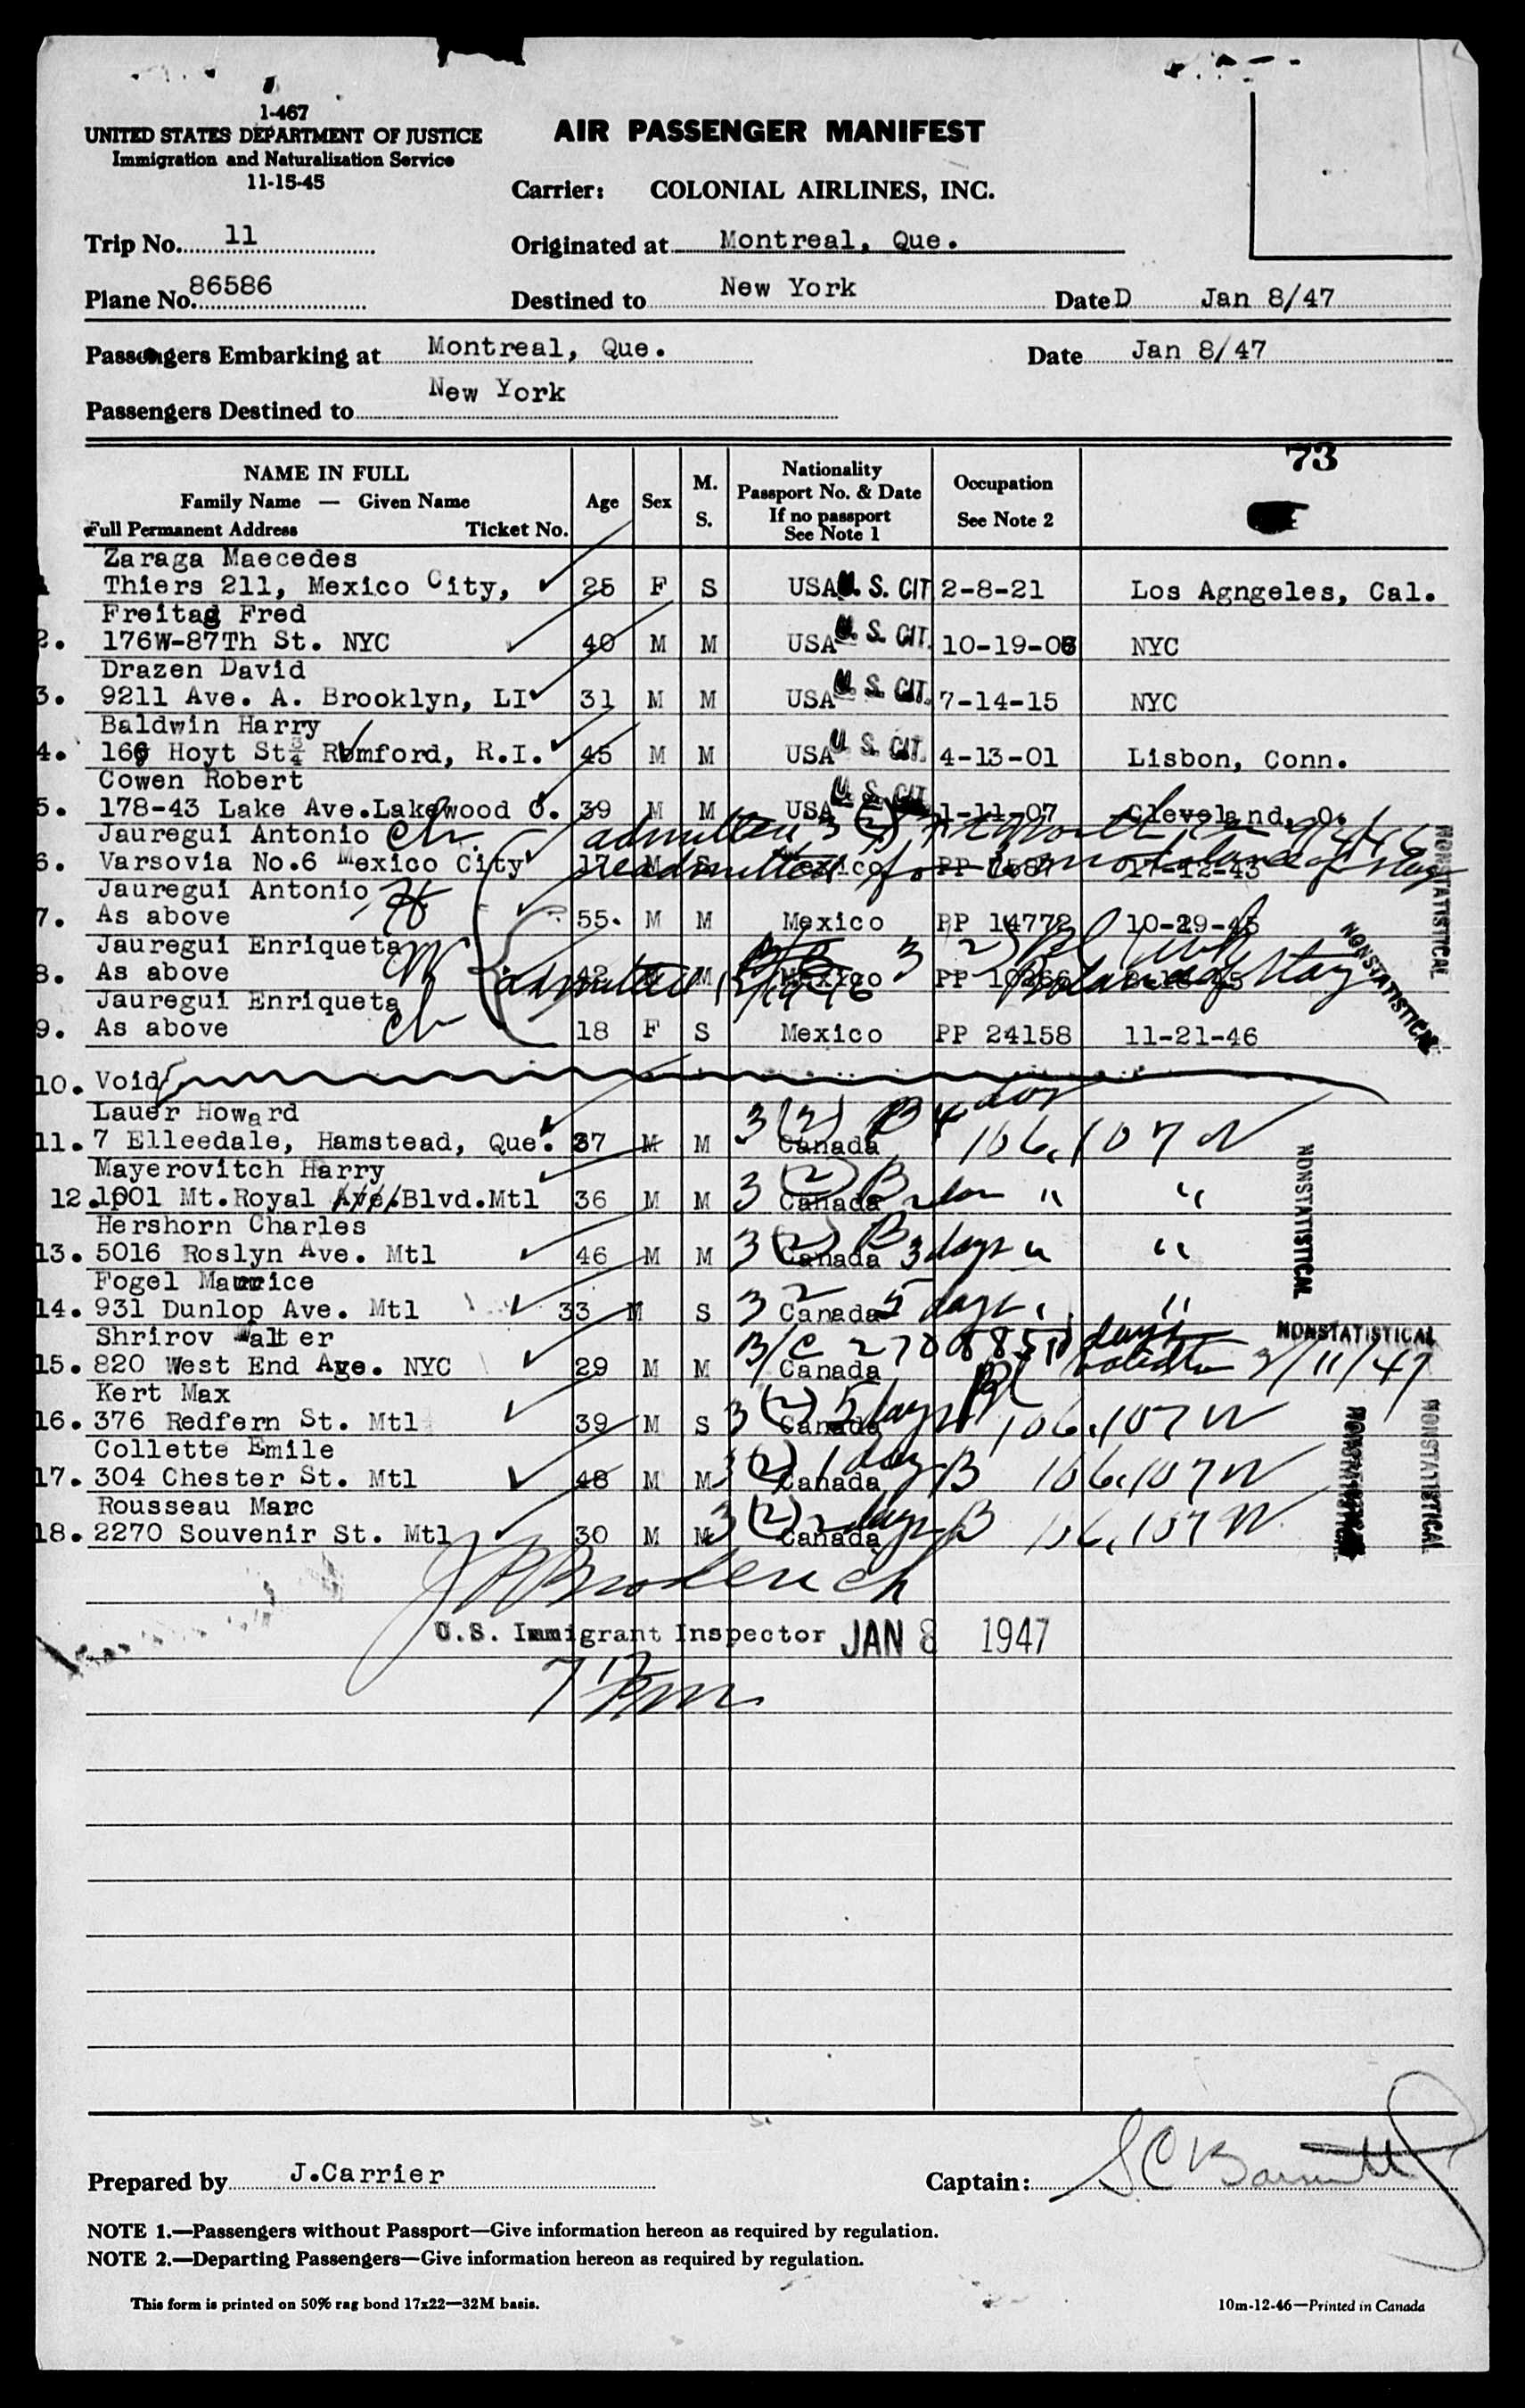 1-467
UNITED STATES DEPARTMENT OF JUSTICE
Immigration and Naturalization Service
11-15-45
AIR PASSENGER MANIFEST
Carrier: COLONIAL AIRLINES, INC.
Trip No. 11
Originated at Montreal, Que.
Plane No. 86586
Destined to New York
Date D Jan 8/47
Passengers Embarking at Montreal, Que.
Date Jan 8/47
Passengers Destined to New York
73
NAME IN FULL
Family Name — Given Name
Full Permanent Address Ticket No.
Age
Sex
M.
S.
Nationality
Passport No. & Date
If no passport
See Note 1
Occupation
See Note 2
Zaraga Maecedes
Thiers 211, Mexico City, 25 F S USA U. S. CIT 2-8-21 Los Agngeles, Cal.
Freitag Fred
2. 176W-87Th St. NYC 40 M M USA U. S. CIT. 10-19-06 NYC
Drazen David
3. 9211 Ave. A. Brooklyn, LI 31 M M USA U. S. CIT. 7-14-15 NYC
Baldwin Harry
4. Hoyt St Rumford, R.I. 45 M M USA U. S. CIT. 4-13-01 Lisbon, Conn.
Cowen Robert
5. 178-43 Lake Ave.Lakewood O. 39 M M USA U. S. CIT 1-11-07 Cleveland, O.
Jauregui Antonio ch. admitted 3 (2)
6. Varsovia No.6 Mexico City 17 M S Mexico PP 17-12-43
readmitted for balance of stay
NONSTATISTICAL
Jauregui Antonio H
7. As above 55. M M Mexico PP 14772 10-29-45
Jauregui Enriqueta W 3 2) B
8. As above 42 M Mexico PP 10266
admitted balance of stay
NONSTATISTICAL
Jauregui Enriqueta ch
9. As above 18 F S Mexico PP 24158 11-21-46
10. Void
Lauer Howard 3 (2) B 4 days
11. 7 Elleedale, Hamstead, Que. 37 M M Canada 106,107 W
Mayerovitch Harry 3 (2) B
12. 1001 Mt.Royal Ave.Blvd.Mtl 36 M M Canada " "
Hershorn Charles 3 (2) B 3 days
13. 5016 Roslyn Ave. Mtl 46 M M Canada " "
NONSTATISTICAL
Fogel Maurice 3 2 5 days
14. 931 Dunlop Ave. Mtl 33 M S Canada "
Shrirov Walter B/C
NONSTATISTICAL
15. 820 West End Age. NYC 29 M M Canada
Kert Max 3 (2) 5 days B
16. 376 Redfern St. Mtl 39 M S Canada 106,107 W
Collette Emile 3 (2) 1 day B
17. 304 Chester St. Mtl 48 M M Canada 106,107 W
NONSTATISTICAL
Rousseau Marc 3 (2) 2 days B
18. 2270 Souvenir St. Mtl 30 M M Canada 106,107 W
J Broderick
U.S. Immigrant Inspector JAN 8 1947
Prepared by J.Carrier
Captain: S C
NOTE 1.—Passengers without Passport—Give information hereon as required by regulation.
NOTE 2.—Departing Passengers—Give information hereon as required by regulation.
This form is printed on 50% rag bond 17x22—32M basis.
10m-12-46—Printed in Canada